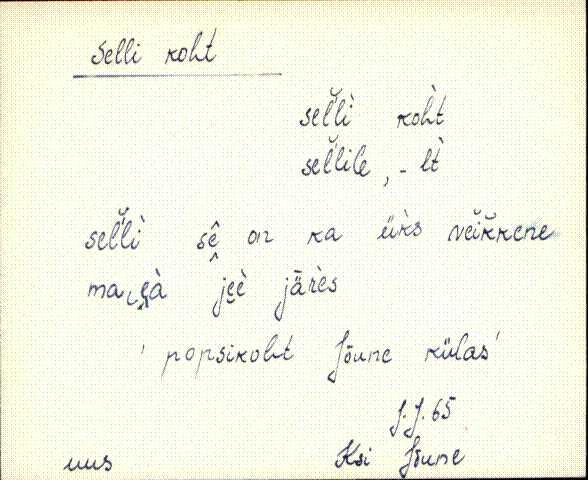 Selli koht
sel̆lì koht̀
sel̆lile, - lt̀
sel̆lì sê on ka ük̀s veik̆kene
jeè järès
' popsikoht Jõune külas'
J.J. 65
uus Ksi Jõune